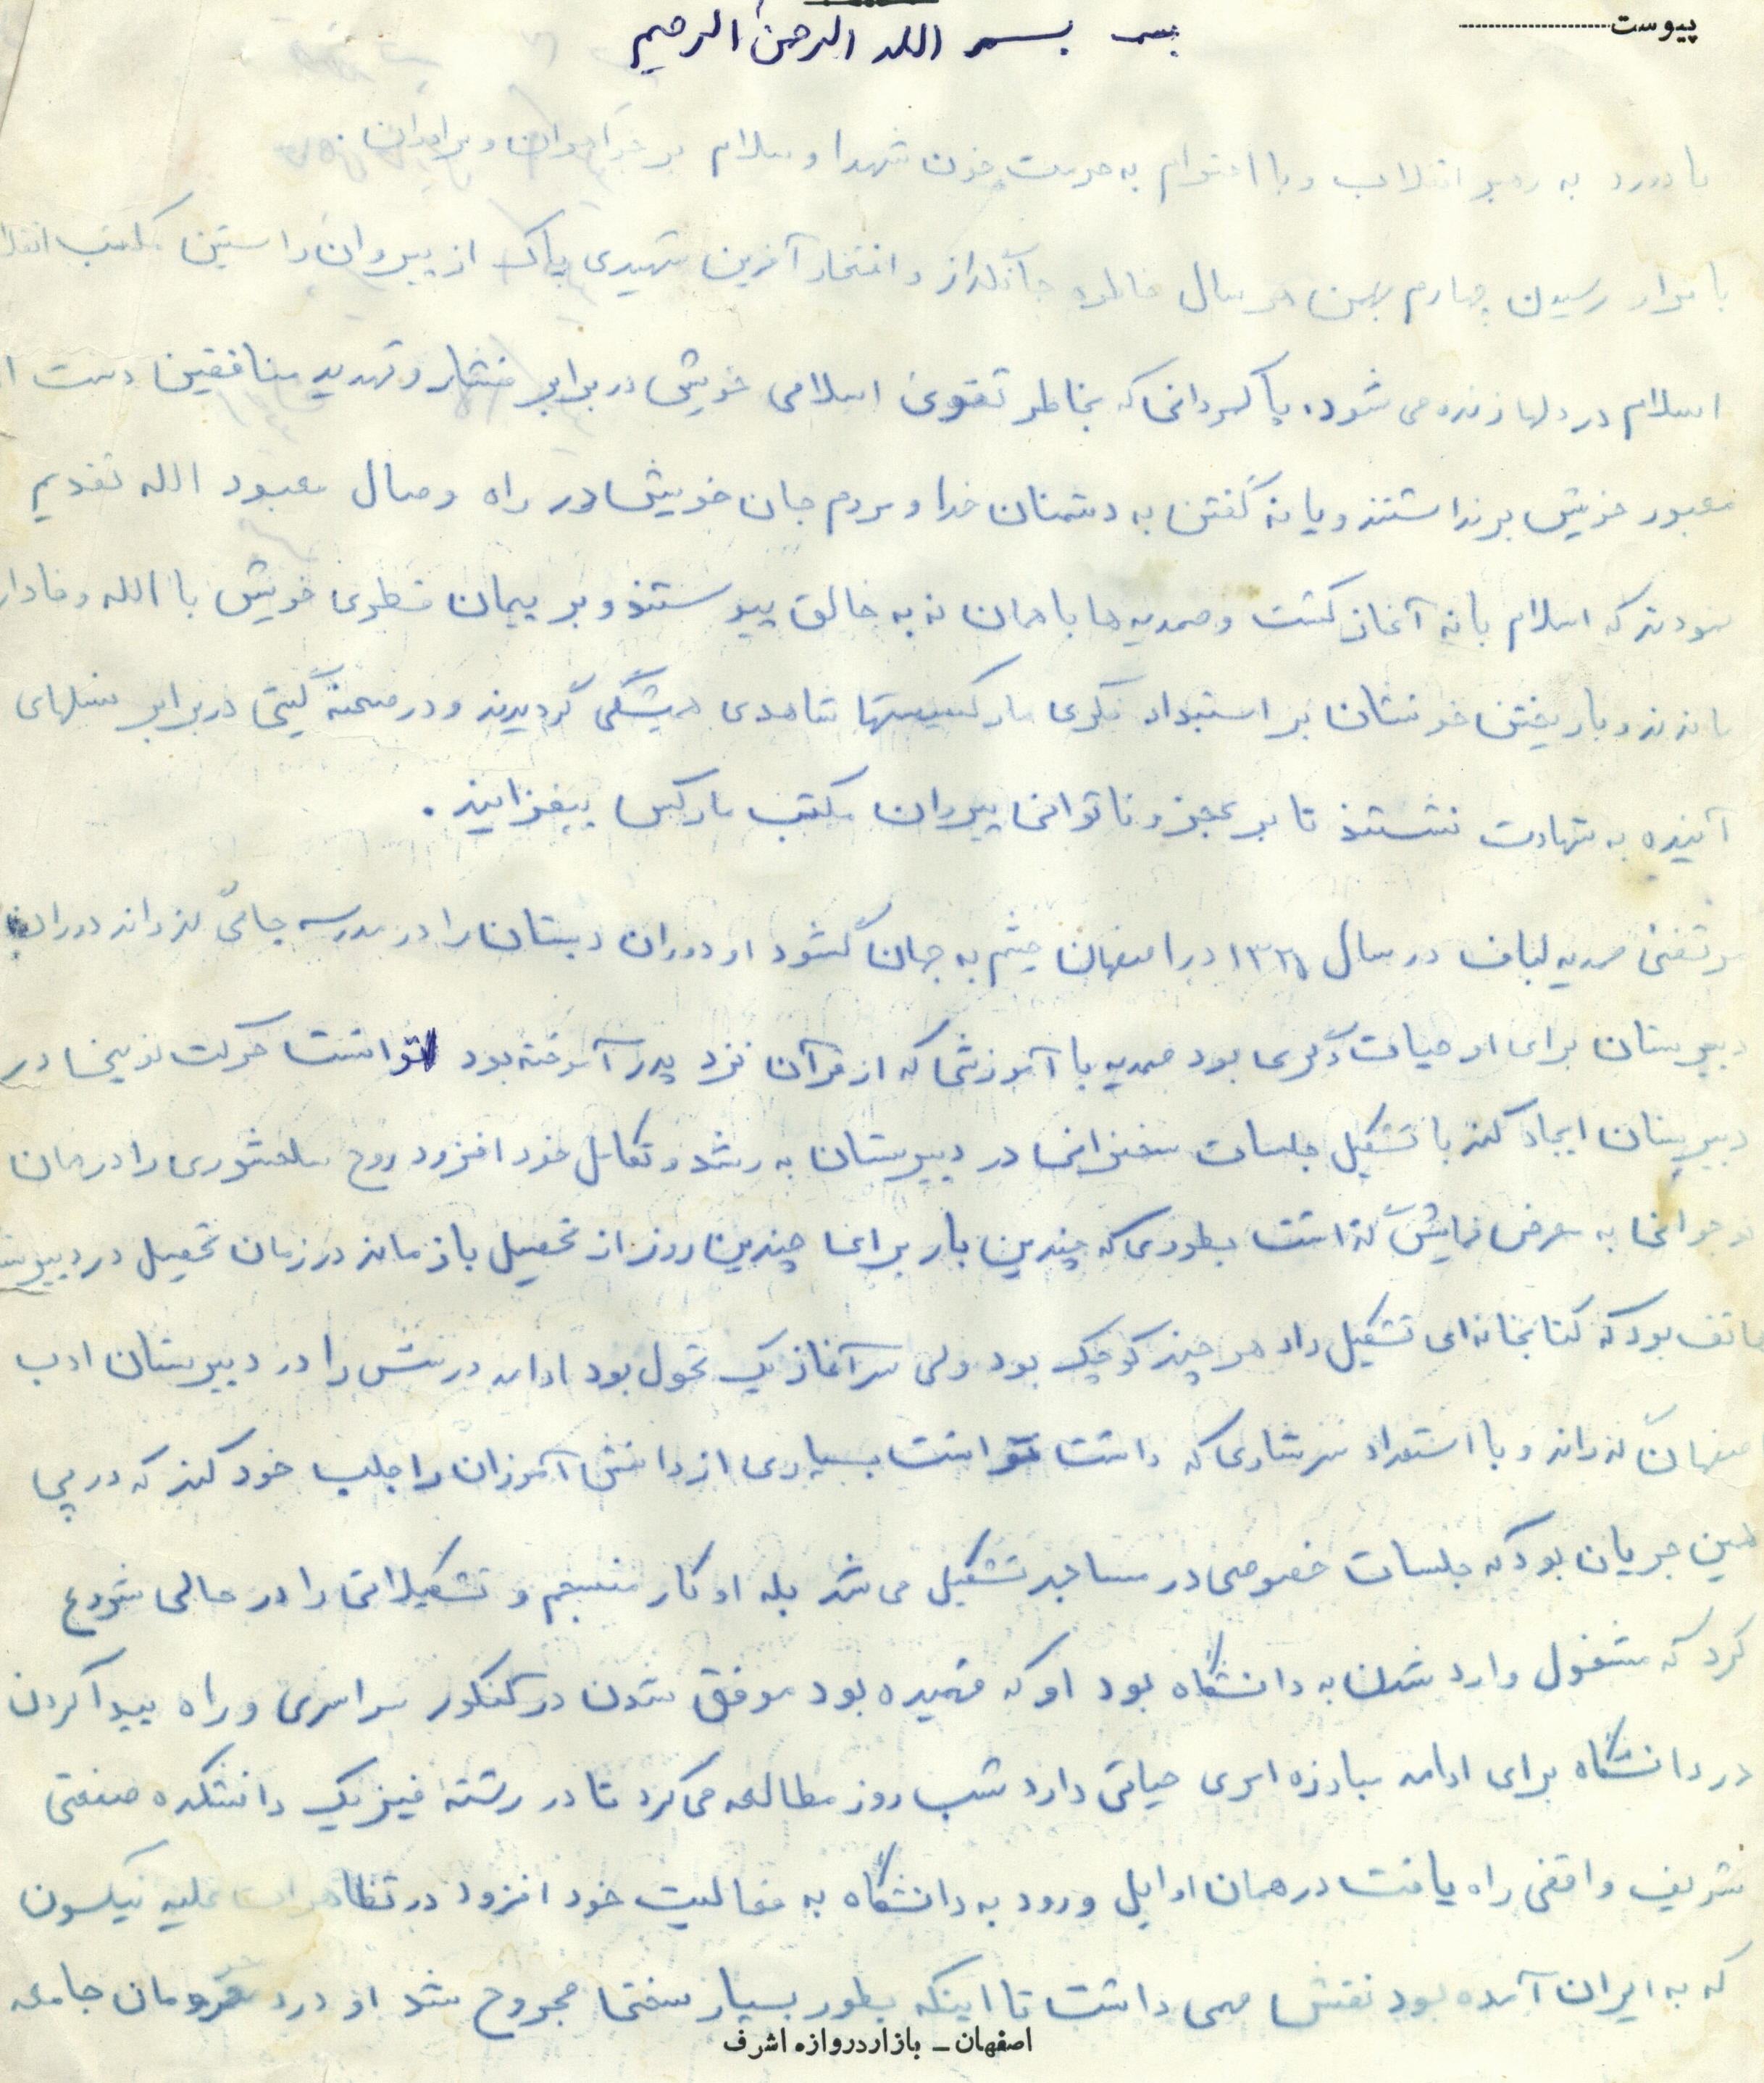 پیوست
بسم بسم الله الرحمن الرحیم
با درود به رهبر انقلاب و با احترام به حرمت خون شهدا و سلام بر خواهران و برادران .
با فرار رسیدن چهارم بهمن هر سال خاطره جانگداز و افتخار آفرین شهیدی پاک از پیروان راستین مکتب انقلا
اسلام در دلها زنده می شود. پاکمردانی که بخاطر تقوی اسلامی خویش در برابر فشار و تهدید منافقین دست از
معبود خویش برنداشتند و با نه گفتن به دشمنان خدا و مردم جان خویش در راه وصال معبود الله تقدیم
نمودند که اسلام با نه آغاز گشت و صمدیه ها با همان نه به خالق پیوستند و بر پیمان فطری خویش با الله وفادار
ماندند و با ریختن خونشان بر استبداد فکری مارکسیستها شاهدی همیشگی گردیدند و در صحنه گیتی در برابر نسلهای
آینده به شهادت نشستند تا بر عجز و ناتوانی پیروان مکتب مارکس بیفزایند .
مرتضی صمدیه لباف در سال در اصفهان چشم به جهان گشود او دوران دبستان را در مدرسه جامی گذراند دوران
دبیرستان برای او حیات دگری بود صمدیه با آموزشی که از قرآن نزد پدر آموخته بود توانست حرکت نوینی در
دبیرستان ایجاد کند با تشکیل جلسات سخنرانی در دبیرستان به رشد و تکامل خود افزود روح سلحشوری را در همان
نوجوانی به معرض نمایش گذاشت بطوری که چندین بار برای چندین روز از تحصیل باز ماند در زمان تحصیل در دبیرست
هاتف بود که کتابخانه ای تشکیل داد هر چند کوچک بود ولی سرآغاز یک تحول بود ادامه درسش را در دبیرستان ادب
اصفهان گذراند و با استعداد سرشاری که داشت توانست بسیاری از دانش آموزان را جلب خود کند که در پی
همین جریان بود که جلسات خصوصی در مساجد تشکیل می شد بله او کار منسجم و تشکیلاتی را در حالی شروع
کرد که مشغول وارد شدن به دانشگاه بود او که فهمیده بود موفق شدن در کنکور سراسری و راه پیدا کردن
در دانشگاه برای ادامه مبارزه امری حیاتی دارد شب روز مطالعه می کرد تا در رشته فیزیک دانشکده صنعتی
شریف واقفی راه یافت در همان اوایل ورود به دانشگاه به فعالیت خود افزود در تظاهرات علیه نیکسون
که به ایران آمده بود نقش مهمی داشت تا اینکه بطور بسیار سختی مجروح شد او درد محرومان جامعه
اصفهان – بازار دروازه اشرف